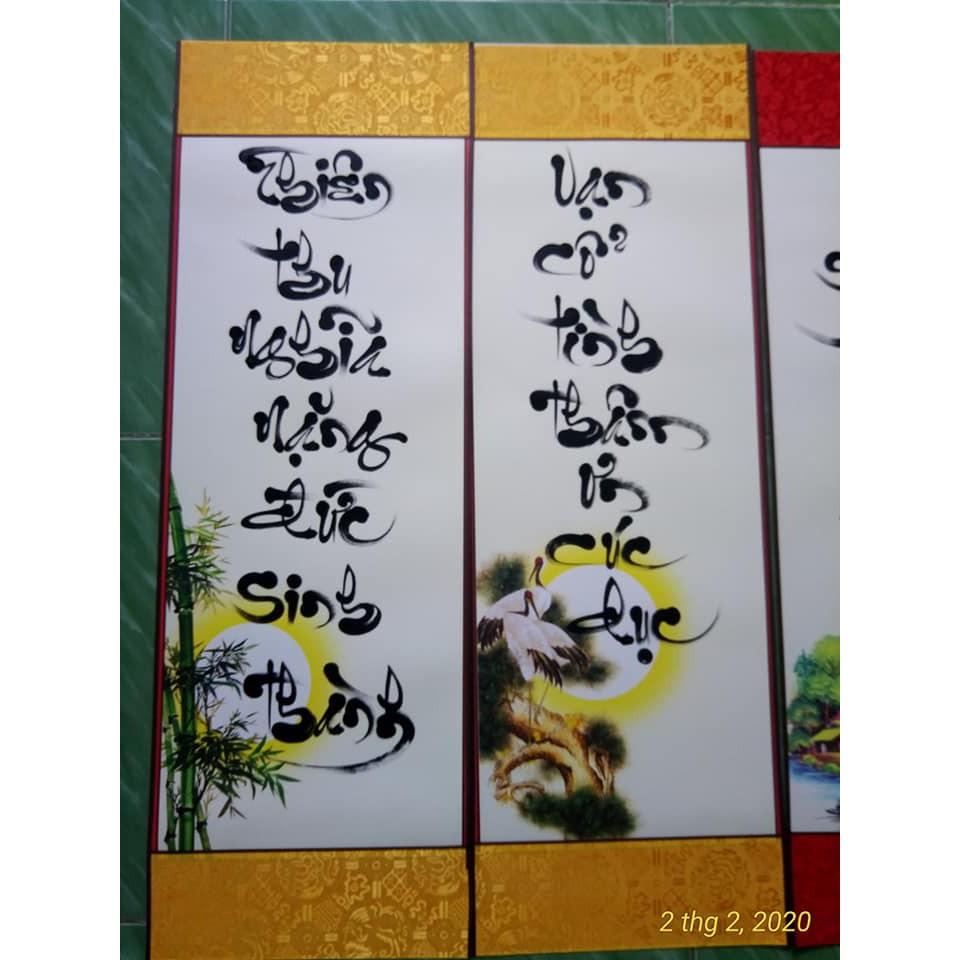 Thiên
thu
nghĩa
nặng
đức
sinh
thành
Vạn
cổ
tình
thâm
ơn
cúc
dục
2 thg 2, 2020